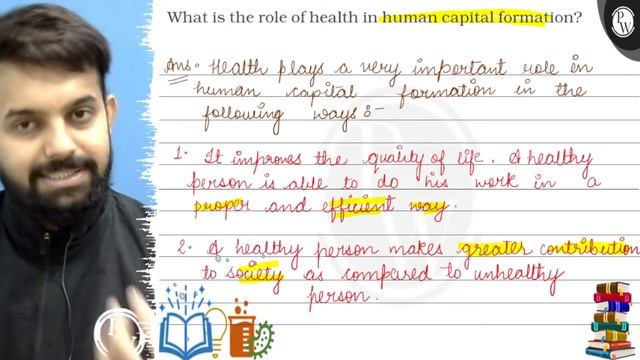 What is the role of health in human capital formation?
PW
Ans:- Health plays a very important role in
human capital formation in the
following ways :-
1. It improves the quality of life. A healthy
person is able to do his work in a
proper and efficient way.
2. A healthy person makes greater contribution
to society as compared to unhealthy
person.